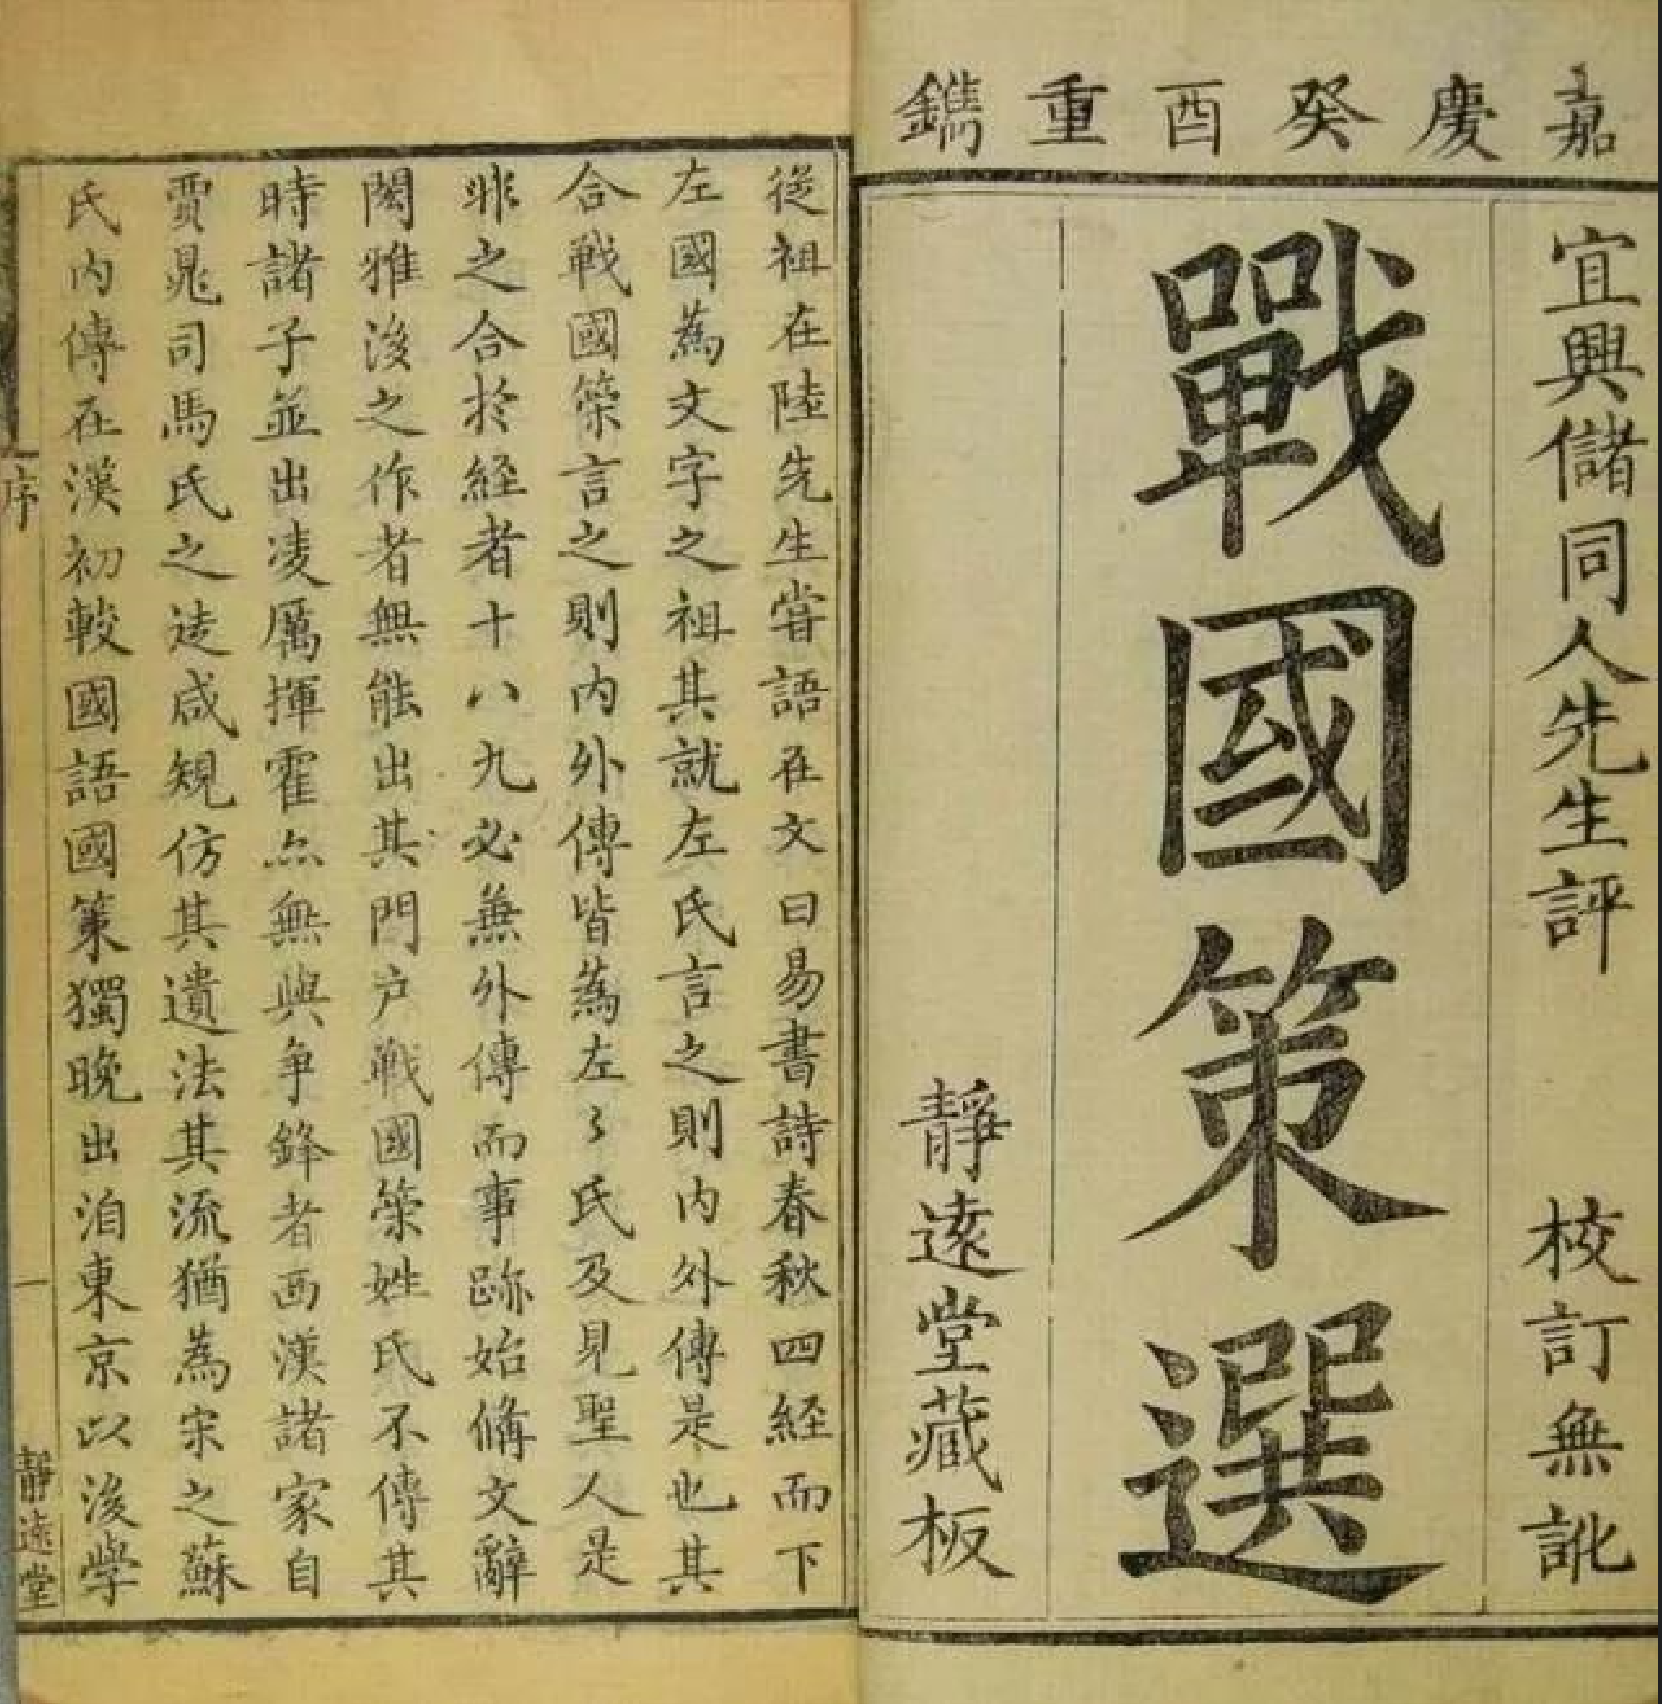 嘉慶癸酉重鐫
宜興儲同人先生評 校訂無訛
戰國策選
靜遠堂藏板
從祖在陸先生嘗語在文曰易書詩春秋四經而下
左國為文字之祖其就左氏言之則內外傳是也其
合戰國策言之則內外傳皆為左〻氏及見聖人是
非之合於經者十八九必兼外傳而事跡始備文辭
閎雅後之作者無能出其門户戰國策姓氏不傳其
時諸子並出凌厲揮霍亦無與爭鋒者西漢諸家自
賈晁司馬氏之逺咸規仿其遺法其流猶為宋之蘇
氏內傳在漢初較國語國策獨晚出洎東京以後學
序
一
靜遠堂